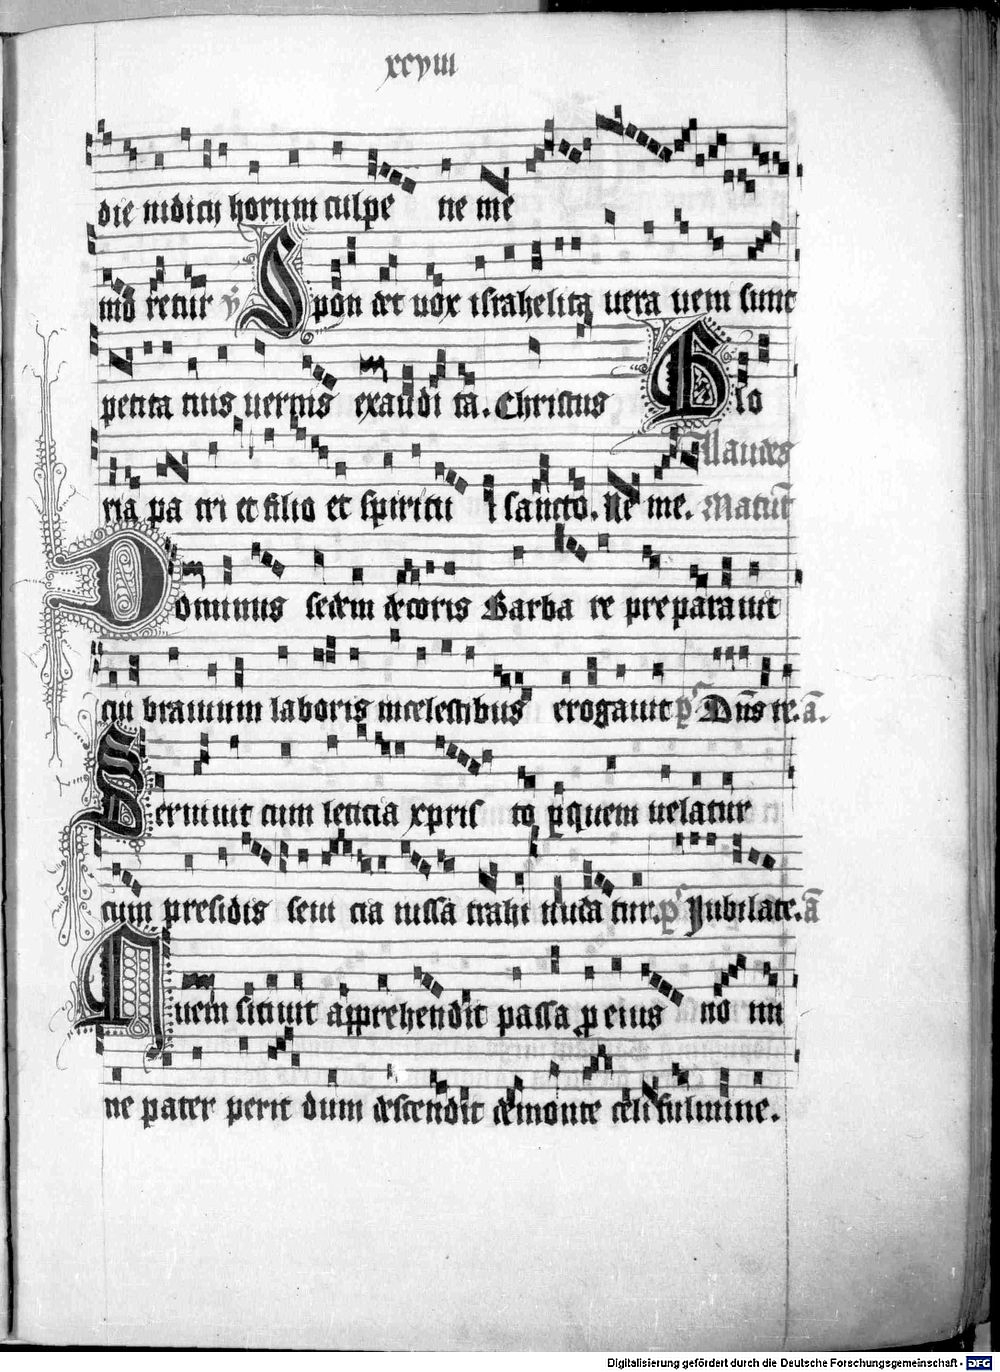 xcviii
die iudicij horum culpe ne me
mo retur v̄ Spon det uox israhelita uera uem sunt
petita tuis uernis exaudi ta. Christus Glo
llaudes
ria pa tri et filio et spiritu i sancto. Ne me. Matut̄
Dominus sedem decoris Barba re preparauit
cui brauium laboris incelestibus erogauit p̄ Dn̄s re. ā.
Seruiuit cum leticia xpris to p quem uelatur
cum presidis seui cia nissa trahi nuda tur. p̄ Jubilate. ā
Quem sitiuit apprehendit passa pro eius no mi
ne pater perit dum descendit de monte celi fulmine.
Digitalisierung gefördert durch die Deutsche Forschungsgemeinschaft - DFG